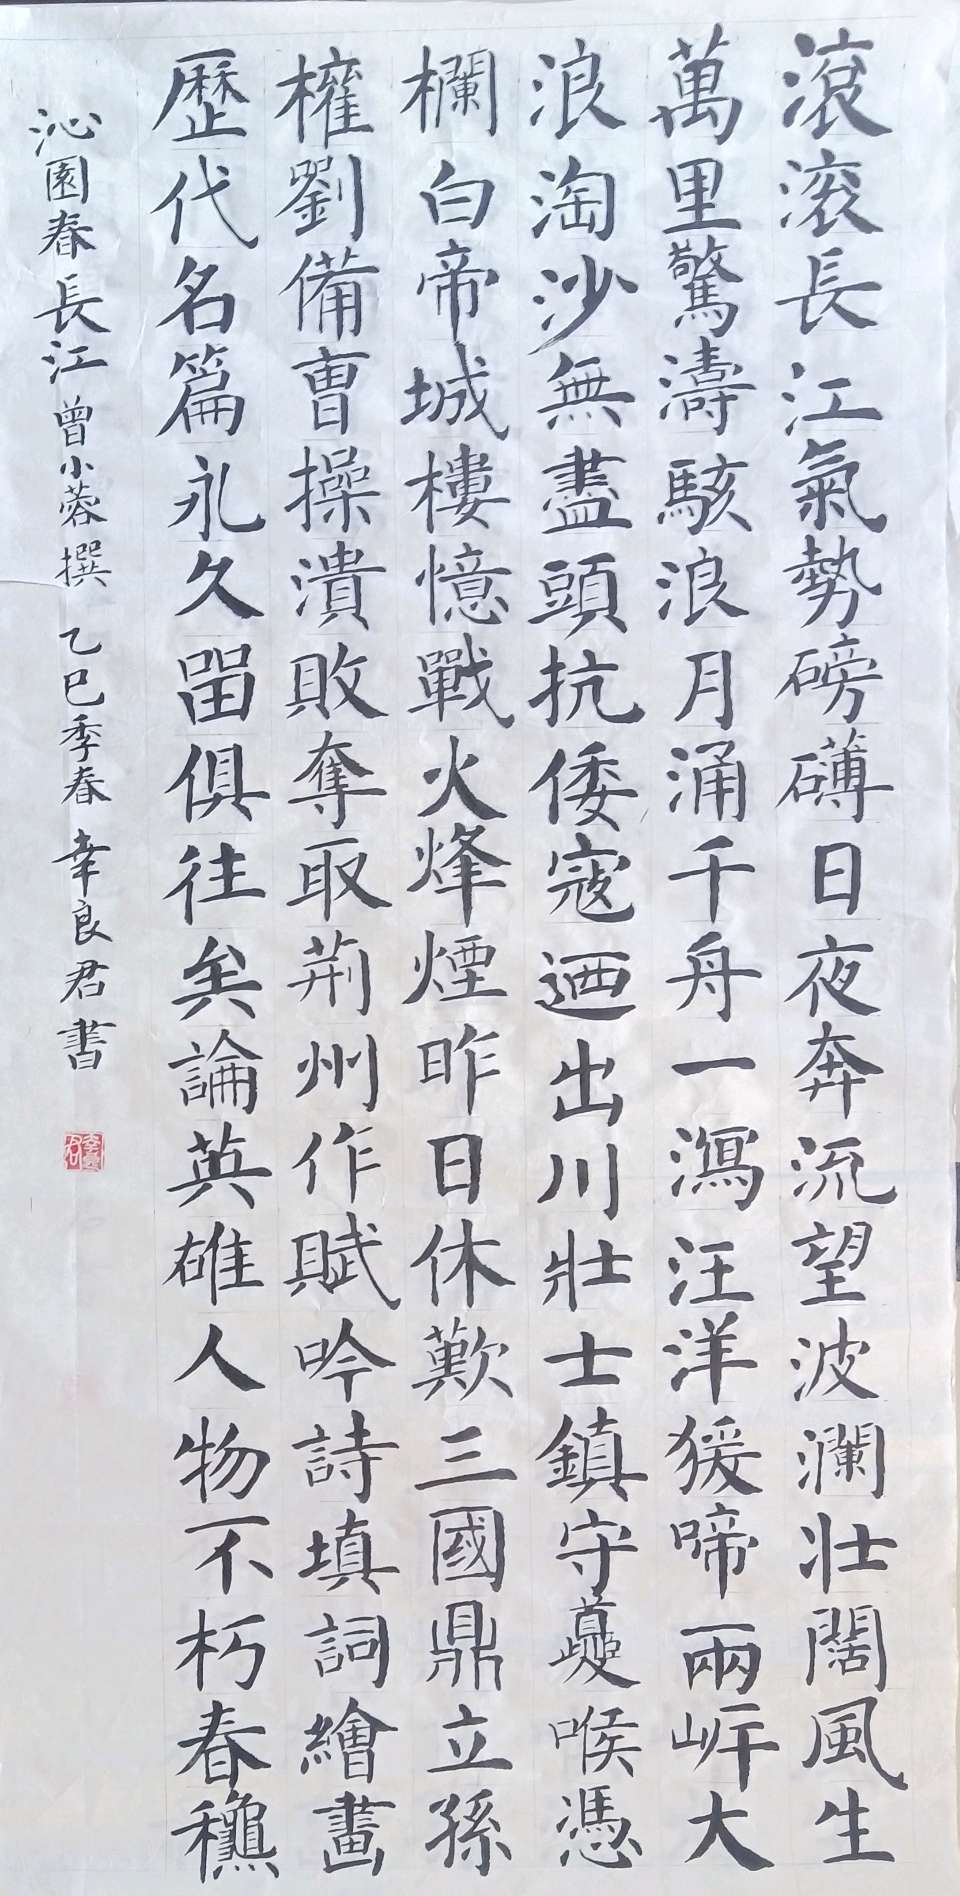 滾滚長江氣勢磅礴日夜奔流望波瀾壮闊風生
萬里驚濤駭浪月涌千舟一瀉汪洋猨啼兩岍大
浪淘沙無盡頭抗倭寇迺出川壯士鎮守夔喉憑
欄白帝城樓憶戰火烽煙昨日休歎三國鼎立孫
權劉備曺操潰敗奪取荊州作賦吟詩填詞繪畫
歷代名篇永久畱俱往矣論英雄人物不朽春龝
沁園春長江曾小蓉撰乙巳季春幸良君書